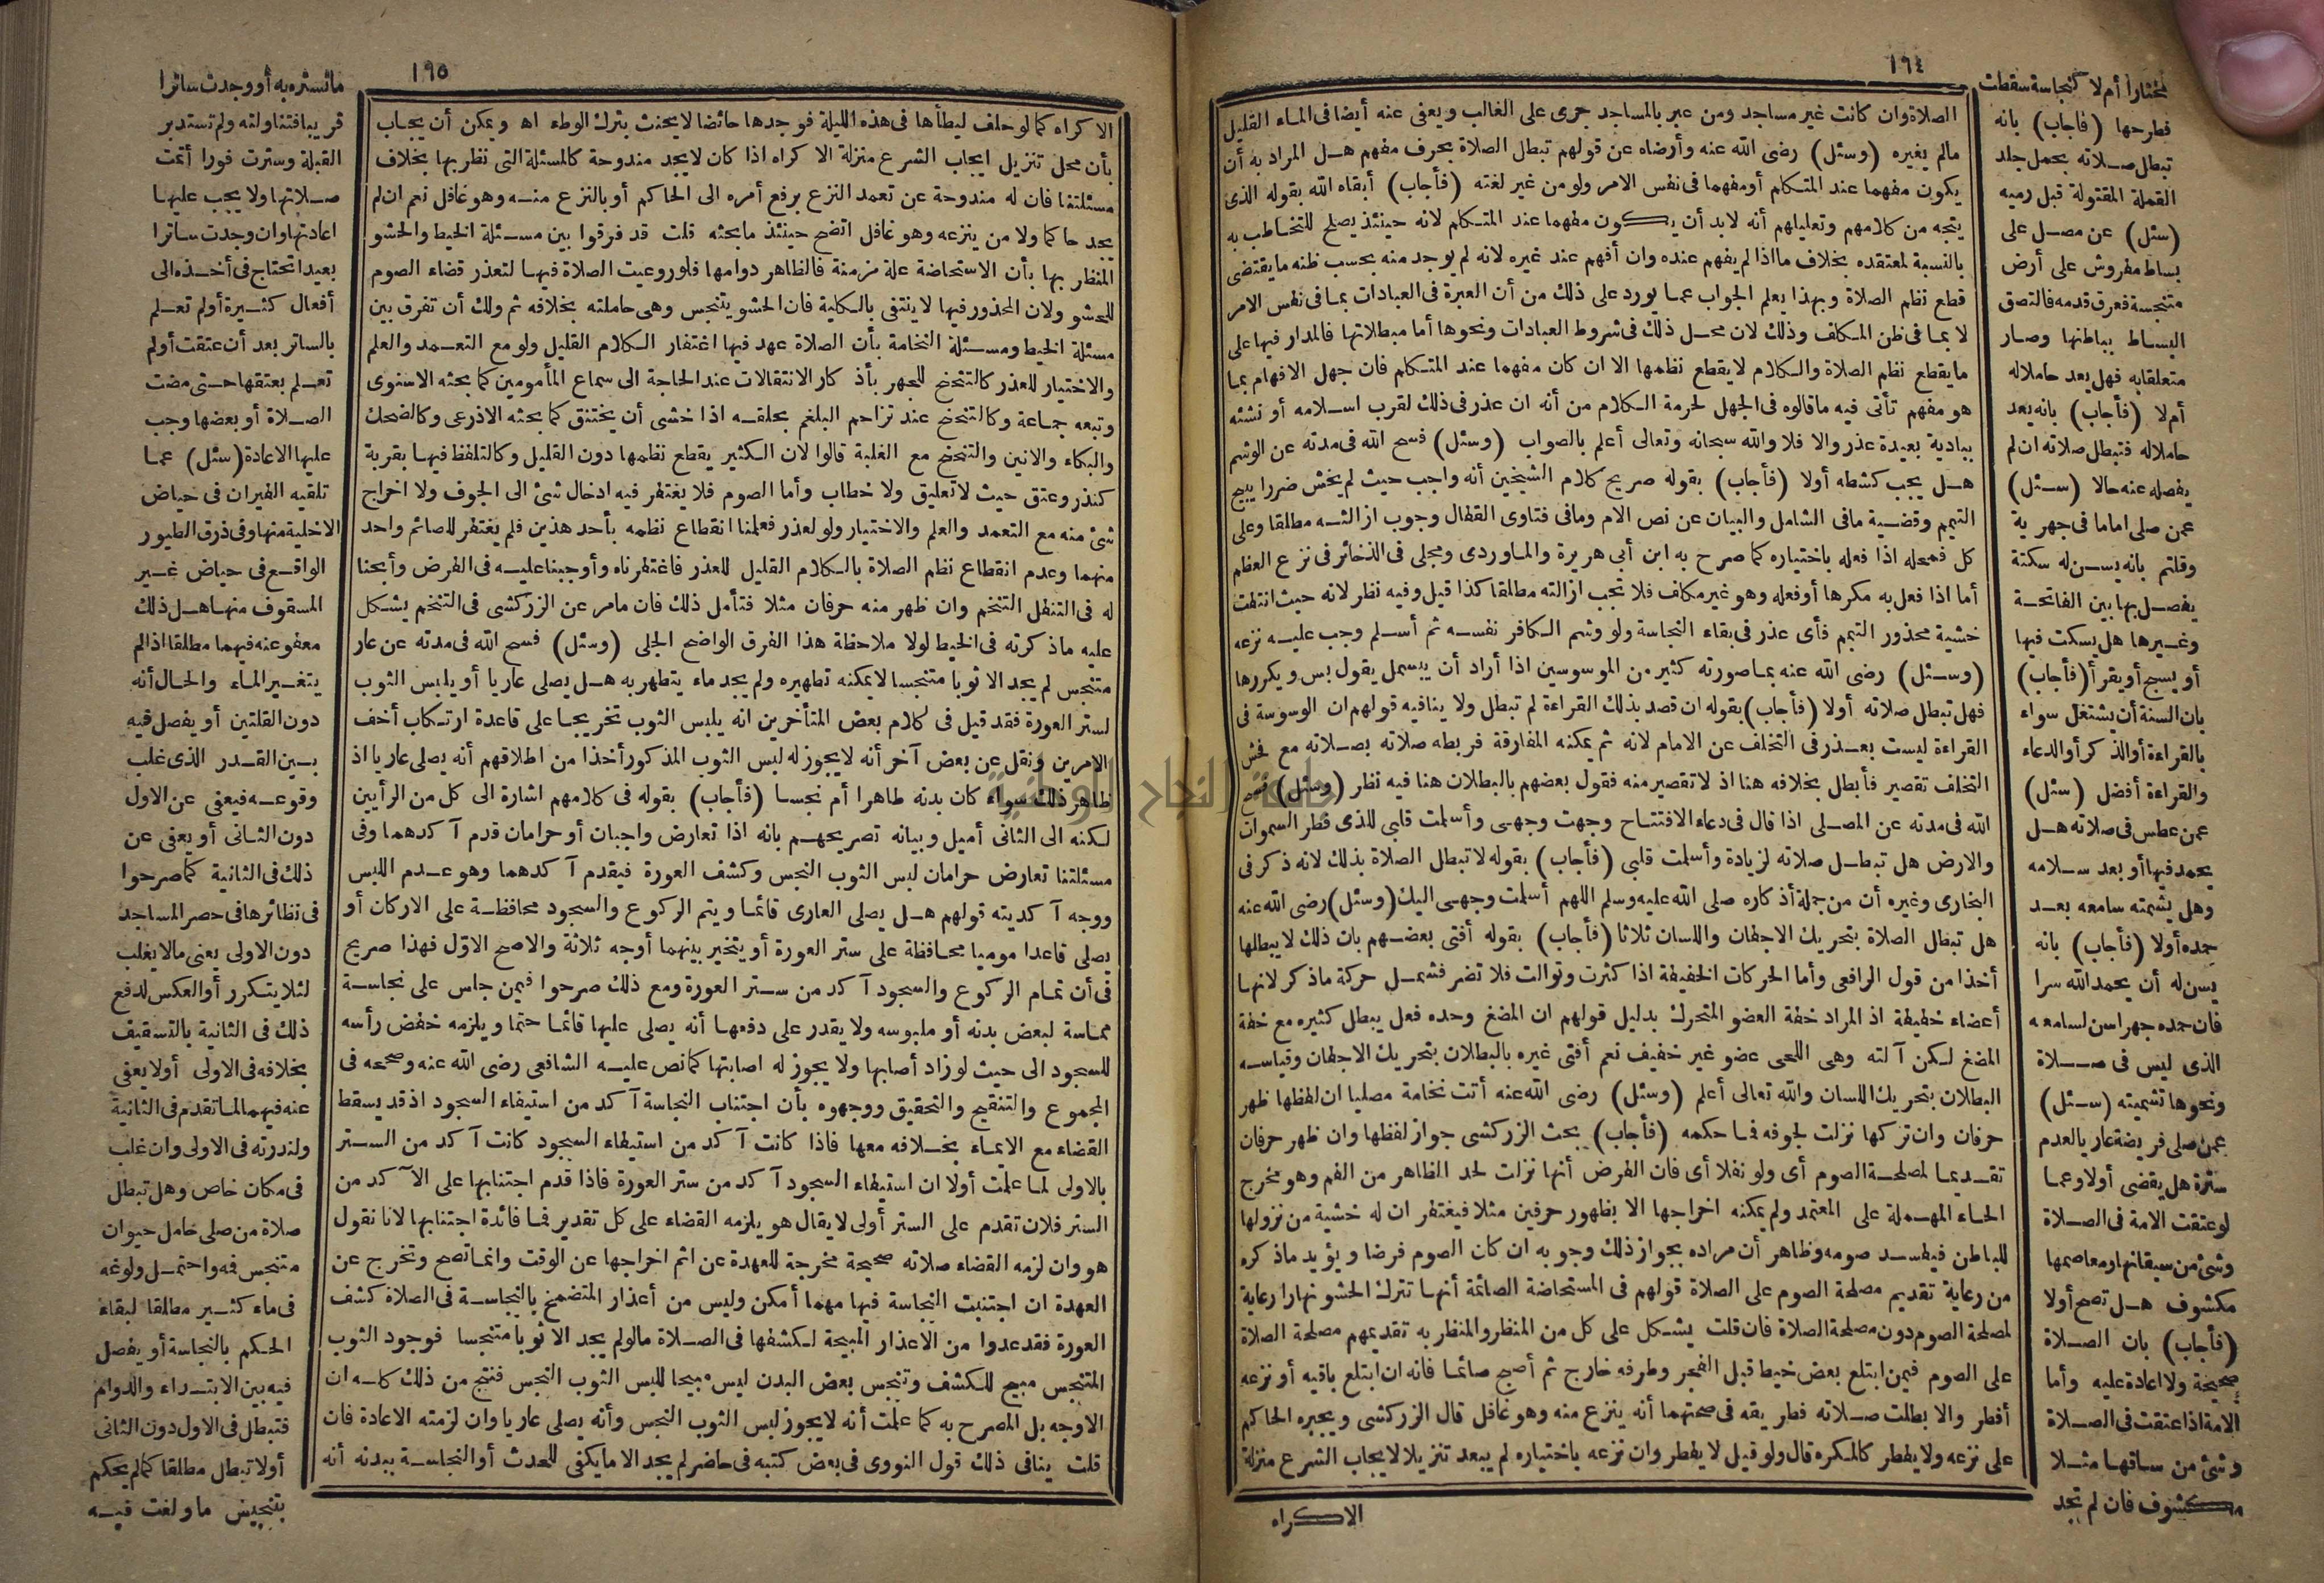 ١٩٤
الصلاة وان كانت غير مساجد ومن عبر بالمساجد جرى على الغالب ويعفى عنه أيضا فى الماء القليل
مالم يغيره (وسئل) رضى الله عنه وأرضاه عن قولهم تبطل الصلاة بحرف مفهم هل المراد به أن
يكون مفهما عند المتكلم أو مفهما فى نفس الامر ولو من غير لغته (فأجاب) أبقاه الله بقوله الذى
يتجه من كلامهم وتعليلهم أنه لابد أن يكون مفهما عند المتكلم لانه حينئذ يصلح للتخاطب به
بالنسبة لمعتقده بخلاف ما اذا لم يفهم عنده وان أفهم عند غيره لانه لم يوجد منه بحسب ظنه ما يقتضى
قطع نظم الصلاة وبهذا يعلم الجواب عما يورد على ذلك من أن العبرة فى العبادات بما فى نفس الامر
لا بما فى ظن المكلف وذلك لان محل ذلك فى شروط العبادات ونحوها أما مبطلاتها فالمدار فيها على
ما يقطع نظم الصلاة والكلام لا يقطع نظمها الا ان كان مفهما عند المتكلم فان جهل الافهام بما
هو مفهم تأتى فيه ما قالوه فى الجهل لحرمة الكلام من أنه ان عذر فى ذلك لقرب اسلامه أو نشئه
ببادية بعيدة عذر والا فلا والله سبحانه وتعالى أعلم بالصواب (وسئل) فسح الله فى مدته عن الوشم
هل يجب كشطه أولا (فأجاب) بقوله صريح كلام الشيخين أنه واجب حيث لم يخش ضررا يبيح
التيمم وقضية ما فى الشامل والبيان عن نص الام وما فى فتاوى القفال وجوب ازالته مطلقا وعلى
كل فمحله اذا فعله باختياره كما صرح به ابن أبى هريرة والماوردى ومجلى فى الذخائر فى نزع العظم
أما اذا فعل به مكرها أو فعله وهو غير مكلف فلا تجب ازالته مطلقا كذا قيل وفيه نظر لانه حيث انتفت
خشية محذور التيمم فأى عذر فى بقاء النجاسة ولو وشم الكافر نفسه ثم أسلم وجب عليه نزعه
(وسئل) رضى الله عنه بما صورته كثير من الموسوسين اذا أراد أن يبسمل يقول بس ويكررها
فهل تبطل صلاته أولا (فأجاب) بقوله ان قصد بذلك القراءة لم تبطل ولا ينافيه قولهم ان الوسوسة فى
القراءة ليست بعذر فى التخلف عن الامام لانه ثم يمكنه المفارقة فربطه صلاته بصلاته مع فحش
التخلف تقصير فأبطل بخلافه هنا اذ لا تقصير منه فقول بعضهم بالبطلان هنا فيه نظر (وسئل) فسح
الله فى مدته عن المصلى اذا قال فى دعاء الافتتاح وجهت وجهى وأسلمت قلبى للذى فطر السموات
والارض هل تبطل صلاته لزيادة وأسلمت قلبى (فأجاب) بقوله لا تبطل الصلاة بذلك لانه ذكر فى
البخارى وغيره أن من جملة أذكاره صلى الله عليه وسلم اللهم أسلمت وجهى اليك (وسئل) رضى الله عنه
هل تبطل الصلاة بتحريك الاجفان واللسان ثلاثا (فأجاب) بقوله أفتى بعضهم بان ذلك لا يبطلها
أخذا من قول الرافعى وأما الحركات الخفيفة اذا كثرت وتوالت فلا تضر فشمل حركة ماذكر لانها
أعضاء خفيفة اذ المراد خفة العضو المتحرك بدليل قولهم ان المضغ وحده فعل يبطل كثيره مع خفة
المضغ لكن آلته وهى اللحى عضو غير خفيف نعم أفتى غيره بالبطلان بتحريك الاجفان وقياسه
البطلان بتحريك اللسان والله تعالى أعلم (وسئل) رضى الله عنه أتت نخامة مصليا ان لفظها ظهر
حرفان وان تركها نزلت لجوفه فما حكمه (فأجاب) بحث الزركشى جواز لفظها وان ظهر حرفان
تقديما لمصلحة الصوم أى ولو نفلا أى فان الفرض أنها نزلت لحد الظاهر من الفم وهو مخرج
الحاء المهملة على المعتمد ولم يمكنه اخراجها الا بظهور حرفين مثلا فيغتفر ان له خشية من نزولها
للباطن فيفسد صومه وظاهر أن مراده بجواز ذلك وجوبه ان كان الصوم فرضا ويؤيد ماذكره
من رعاية تقديم مصلحة الصوم على الصلاة قولهم فى المستحاضة الصائمة أنها تترك الحشو نهارا رعاية
لمصلحة الصوم دون مصلحة الصلاة فان قلت يشكل على كل من المنظر والمنظر به تقديمهم مصلحة الصلاة
على الصوم فيمن ابتلع بعض خيط قبل الفجر وطرفه خارج ثم أصبح صائما فانه ان ابتلع باقيه أو نزعه
أفطر والا بطلت صلاته فطريقه فى صحتهما أنه ينزع منه وهو غافل قال الزركشى ويجبره الحاكم
على نزعه ولا يفطر كالمكره قال ولو قيل لا يفطر وان نزعه باختياره لم يبعد تنزيلا لايجاب الشرع منزلة
الاكراه
مختارا أم لا كنجاسة سقطت
فطرحها (فأجاب) بانه
تبطل صلاته بحمل جلد
القملة المقتولة قبل رميه
(سئل) عن مصل على
بساط مفروش على أرض
متنجسة فعرق قدمه فالتصق
البساط بباطنها وصار
متعلقا به فهل يعد حاملا له
أم لا (فأجاب) بانه يعد
حاملا له فتبطل صلاته ان لم
يفصله عنه حالا (سئل)
عمن صلى اماما فى جهرية
وقلتم بانه يسن له سكتة
يفصل بها بين الفاتحة
وغيرها هل يسكت فيها
أو يسبح أو يقرأ (فأجاب)
بان السنة أن يشتغل سواء
بالقراءة أو الذكر أو الدعاء
والقراءة أفضل (سئل)
عمن عطس فى صلاته هل
يحمد فيها أو بعد سلامه
وهل يشمته سامعه بعد
حمده أولا (فأجاب) بانه
يسن له أن يحمد الله سرا
فان حمده جهرا سن لسامعه
الذى ليس فى صلاة
ونحوها تشميته (سئل)
عمن صلى فريضة عاريا لعدم
سترة هل يقضى أولا وعما
لو عتقت الامة فى الصلاة
وشئ من سيقانها ومعاصمها
مكشوف هل تصح أولا
(فأجاب) بان الصلاة
صحيحة ولا اعادة عليه وأما
الامة اذا عتقت فى الصلاة
وشئ من ساقها مثلا
مكشوف فان لم تجد
١٩٥
الاكراه كما لو حلف ليطأها فى هذه الليلة فوجدها حائضا لا يحنث بترك الوطء اه ويمكن أن يجاب
بأن محل تنزيل ايجاب الشرع منزلة الاكراه اذا كان لا يجد مندوحة كالمسئلة التى نظر بها بخلاف
مسئلتنا فان له مندوحة عن تعمد النزع برفع أمره الى الحاكم أو بالنزع منه وهو غافل نعم ان لم
يجد حاكما ولا من ينزعه وهو غافل اتضح حينئذ ما بحثه قلت قد فرقوا بين مسئلة الخيط والحشو
المنظر بها بأن الاستحاضة علة مزمنة فالظاهر دوامها فلو روعيت الصلاة فيها لتعذر قضاء الصوم
للحشو ولان المحذور فيها لا ينتفى بالكلية فان الحشو يتنجس وهى حاملته بخلافه ثم ولك أن تفرق بين
مسئلة الخيط ومسئلة النخامة بأن الصلاة عهد فيها اغتفار الكلام القليل ولو مع التعمد والعلم
والاختيار للعذر كالتنحنح للجهر بأذكار الانتقالات عند الحاجة الى سماع المأمومين كما بحثه الاسنوى
وتبعه جماعة وكالتنحنح عند تزاحم البلغم بحلقه اذا خشى أن يختنق كما بحثه الاذرعى وكالضحك
والبكاء والانين والتنحنح مع الغلبة قالوا لان الكثير يقطع نظمها دون القليل وكالتلفظ فيها بقربة
كنذر وعتق حيث لا تعليق ولا خطاب وأما الصوم فلا يغتفر فيه ادخال شئ الى الجوف ولا اخراج
شئ منه مع التعمد والعلم والاختيار ولو لعذر فعلمنا انقطاع نظمه بأحد هذين فلم يغتفر للصائم واحد
منهما وعدم انقطاع نظم الصلاة بالكلام القليل للعذر فاغتفرناه وأوجبنا عليه فى الفرض وأبحنا
له فى التنفل التنخم وان ظهر منه حرفان مثلا فتأمل ذلك فان مامر عن الزركشى فى التنخم يشكل
عليه ماذكرته فى الخيط لولا ملاحظة هذا الفرق الواضح الجلى (وسئل) فسح الله فى مدته عن عار
متنجس لم يجد الا ثوبا متنجسا لا يمكنه تطهيره ولم يجد ماء يتطهر به هل يصلى عاريا أو يلبس الثوب
لستر العورة فقد قيل فى كلام بعض المتأخرين انه يلبس الثوب تخريجا على قاعدة ارتكاب أخف
الامرين ونقل عن بعض آخر أنه لا يجوز له لبس الثوب المذكور أخذا من اطلاقهم أنه يصلى عاريا اذ
ظاهر ذلك سواء كان بدنه طاهرا أم نجسا (فأجاب) بقوله فى كلامهم اشارة الى كل من الرأيين
لكنه الى الثانى أميل وبيانه تصريحهم بانه اذا تعارض واجبان أو حرامان قدم آكدهما وفى
مسئلتنا تعارض حرامان لبس الثوب النجس وكشف العورة فيقدم آكدهما وهو عدم اللبس
ووجه آكديته قولهم هل يصلى العارى قائما ويتم الركوع والسجود محافظة على الاركان أو
يصلى قاعدا موميا محافظة على ستر العورة أو يتخير بينهما أوجه ثلاثة والاصح الاول فهذا صريح
فى أن تمام الركوع والسجود آكد من ستر العورة ومع ذلك صرحوا فيمن جلس على نجاسة
مماسة لبعض بدنه أو ملبوسه ولا يقدر على دفعها أنه يصلى عليها قائما حتما ويلزمه خفض رأسه
للسجود الى حيث لو زاد أصابها ولا يجوز له اصابتها كما نص عليه الشافعى رضى الله عنه وصححه فى
المجموع والتنقيح والتحقيق ووجهوه بأن اجتناب النجاسة آكد من استيفاء السجود اذ قد يسقط
القضاء مع الايماء بخلافه معها فاذا كانت آكد من استيفاء السجود كانت آكد من الستر
بالاولى لما علمت أولا ان استيفاء السجود آكد من ستر العورة فاذا قدم اجتنابها على الآكد من
الستر فلان تقدم على الستر أولى لا يقال هو يلزمه القضاء على كل تقدير فما فائدة اجتنابها لانا نقول
هو وان لزمه القضاء صلاته صحيحة مخرجة للعهدة عن اثم اخراجها عن الوقت وانما تصح وتخرج عن
العهدة ان اجتنبت النجاسة فيها مهما أمكن وليس من أعذار المتضمخ بالنجاسة فى الصلاة كشف
العورة فقد عدوا من الاعذار المبيحة لكشفها فى الصلاة مالو لم يجد الا ثوبا متنجسا فوجود الثوب
المتنجس مبيح للكشف وتنجس بعض البدن ليس مبيحا للبس الثوب النجس فنتج من ذلك كله ان
الاوجه بل المصرح به كما علمت أنه لا يجوز لبس الثوب النجس وأنه يصلى عاريا وان لزمته الاعادة فان
قلت ينافى ذلك قول النووى فى بعض كتبه فى حاضر لم يجد الا ما يكفى للحدث أو النجاسة ببدنه أنه
ما تستتر به أو وجدت ساترا
قريبا فتناولته ولم تستدبر
القبلة وسترت فورا أتمت
صلاتها ولا يجب عليها
اعادتها وان وجدت ساترا
بعيدا تحتاج فى أخذه الى
أفعال كثيرة أو لم تعلم
بالساتر بعد أن عتقت أو لم
تعلم بعتقها حتى مضت
الصلاة أو بعضها وجب
عليها الاعادة (سئل) عما
تلقيه الفيران فى حياض
الاخلية منها وفى ذرق الطيور
الواقع فى حياض غير
المسقوف منها هل ذلك
معفو عنه فيهما مطلقا اذا لم
يتغير الماء والحال أنه
دون القلتين أو يفصل فيه
بين القدر الذى غلب
وقوعه فيعفى عن الاول
دون الثانى أو يعفى عن
ذلك فى الثانية كما صرحوا
فى نظائرها فى حصر المساجد
دون الاولى يعنى مالا يغلب
لئلا يتكرر أو العكس لدفع
ذلك فى الثانية بالتسقيف
بخلافه فى الاولى أولا يعفى
عنه فيهما لما تقدم فى الثانية
ولندرته فى الاولى وان غلب
فى مكان خاص وهل تبطل
صلاة من صلى حامل حيوان
متنجس فمه واحتمل ولوغه
فى ماء كثير مطلقا لبقاء
الحكم بالنجاسة أو يفصل
فيه بين الابتداء والدوام
فتبطل فى الاول دون الثانى
أولا تبطل مطلقا كما لم يحكم
بتنجيس ما ولغت فيه